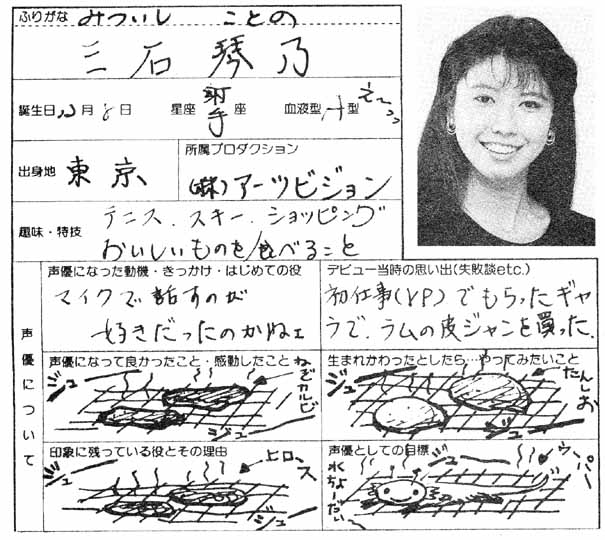 ふりがな みついし ことの
三石琴乃
誕生日12月8日 星座 射手座 血液型 A型 えーっっ
出身地 東京
所属プロダクション
(株)アーツビジョン
趣味・特技 テニス、スキー、ショッピング
おいしいものを食べること
声優について
声優になった動機・きっかけ・はじめての役
マイクで話すのが
好きだったのかねェ
デビュー当時の思い出(失敗談etc.)
初仕事(VP)でもらったギャ
ラで、ラムの皮ジャンを買った。
声優になって良かったこと・感動したこと
ジュー
ねぎカルビ
ジュー
生まれかわったとしたら…やってみたいこと
ジュー
たんしお
印象に残っている役とその理由
ジュー
上ロース
ジュー
声優としての目標
ジュー
ウーパー
水ちょーだい〜